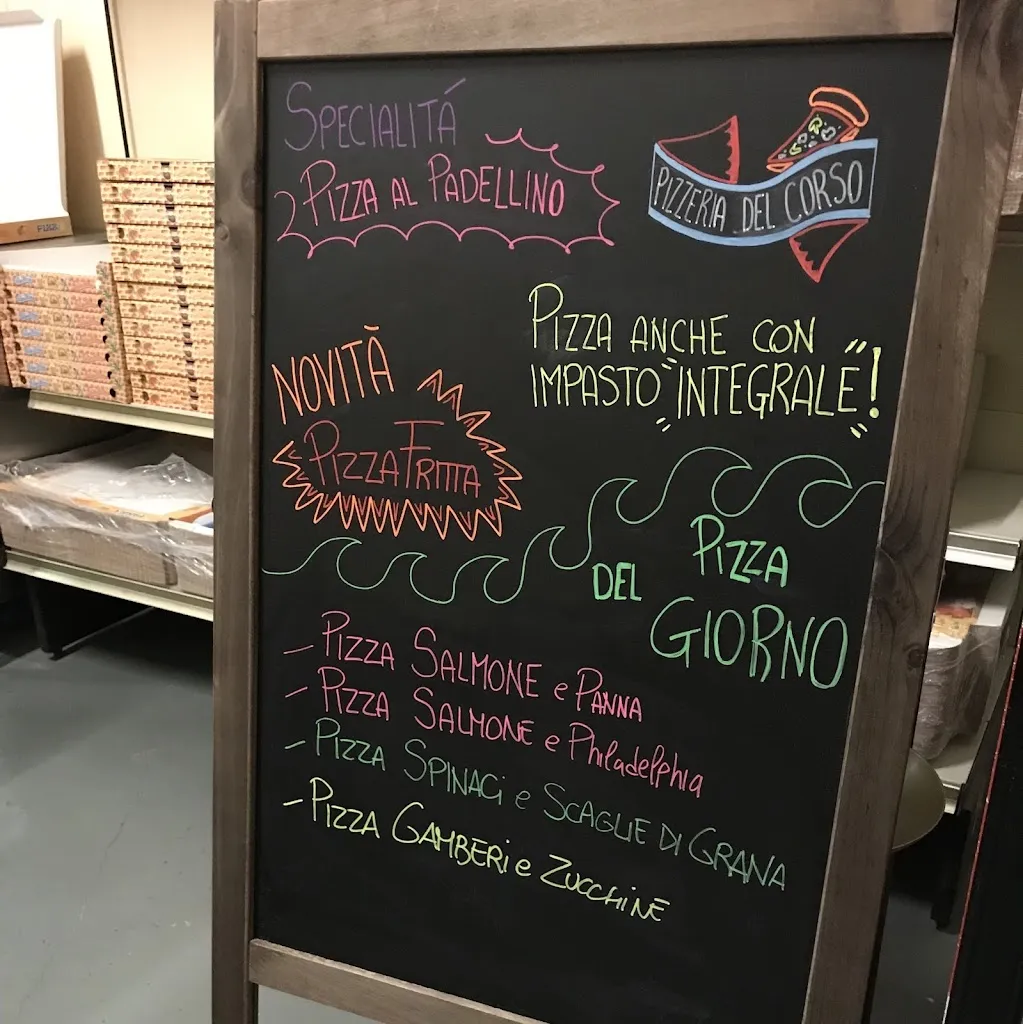 SPECIALITÁ
PIZZA AL PADELLINO
PIZZERIA DEL CORSO
PIZZA ANCHE CON
IMPASTO "INTEGRALE"!
NOVITÀ
PIZZA FRITTA
PIZZA
DEL
GIORNO
- PIZZA SALMONE e PANNA
- PIZZA SALMONE e Philadelphia
- PIZZA SPINACi e SCAGLIE DI GRANA
- PIZZA GAMBERi e ZUCCHINE